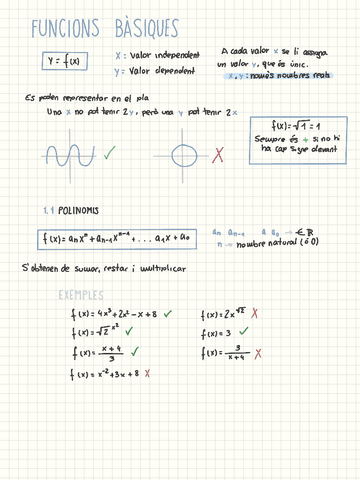 FUNCIONS BÀSIQUES
y = f(x)
X: Valor independent
y = Valor dependent
A cada valor x se li assigna
un valor y, que és únic.
x, y: només nombres reals
Es poden representar en el pla
Una x no pot tenir 2y, però una y pot tenir 2x
f(x)=√1 = 1
Sempre és + si no hi
ha cap signe davant
1.1 POLINOMIS
f(x)=aₙxⁿ+aₙ₋₁xⁿ⁻¹+...a₁x+a₀
aₙ aₙ₋₁ a a₀ → ∈ ℝ
n → nombre natural (ó 0)
S'obtenen de sumar, restar i multiplicar
EXEMPLES
f(x)= 4x³+2x²-x+8 ✓
f(x)=√2 x² ✓
f(x)= x+4/3 ✓
f(x)= x⁻²+3x+8 X
f(x)=2x^√2 X
f(x)= 3 ✓
f(x)= 3/x+4 X